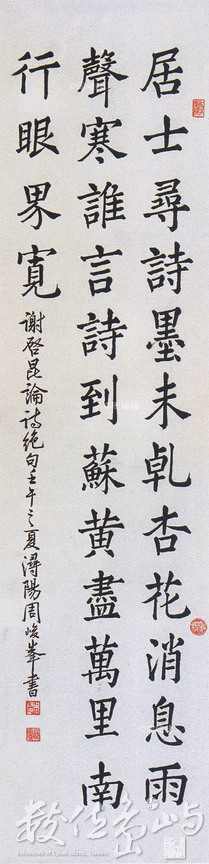 居士尋詩墨未乹杏花消息雨
聲寒誰言詩到蘇黃盡萬里南
行眼界寬
謝啓昆論詩絕句壬午之夏潯陽周峻峯書
數位島嶼